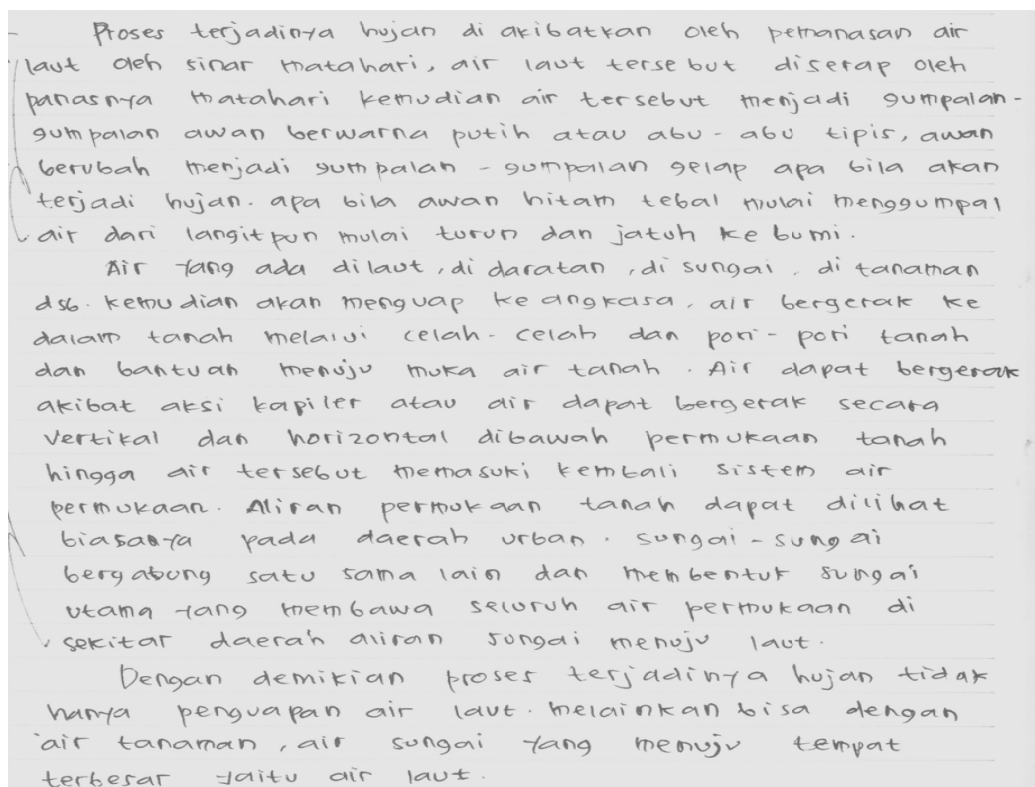 Proses terjadinya hujan di akibatkan oleh pemanasan air
laut oleh sinar matahari, air laut tersebut diserap oleh
panasnya matahari kemudian air tersebut menjadi gumpalan-
gumpalan awan berwarna putih atau abu-abu tipis, awan
berubah menjadi gumpalan-gumpalan gelap apa bila akan
terjadi hujan. apa bila awan hitam tebal mulai menggumpal
air dari langitpun mulai turun dan jatuh ke bumi.
Air yang ada dilaut, di daratan, di sungai, di tanaman
dsb. kemudian akan menguap ke angkasa, air bergerak ke
dalam tanah melalui celah-celah dan pori-pori tanah
dan bantuan menuju muka air tanah. Air dapat bergerak
akibat aksi kapiler atau air dapat bergerak secara
vertikal dan horizontal dibawah permukaan tanah
hingga air tersebut memasuki kembali sistem air
permukaan. Aliran permukaan tanah dapat dilihat
biasanya pada daerah urban. sungai-sungai
bergabung satu sama lain dan membentuk sungai
utama yang membawa seluruh air permukaan di
sekitar daerah aliran sungai menuju laut.
Dengan demikian proses terjadinya hujan tidak
hanya penguapan air laut. melainkan bisa dengan
air tanaman, air sungai yang menuju tempat
terbesar yaitu air laut.